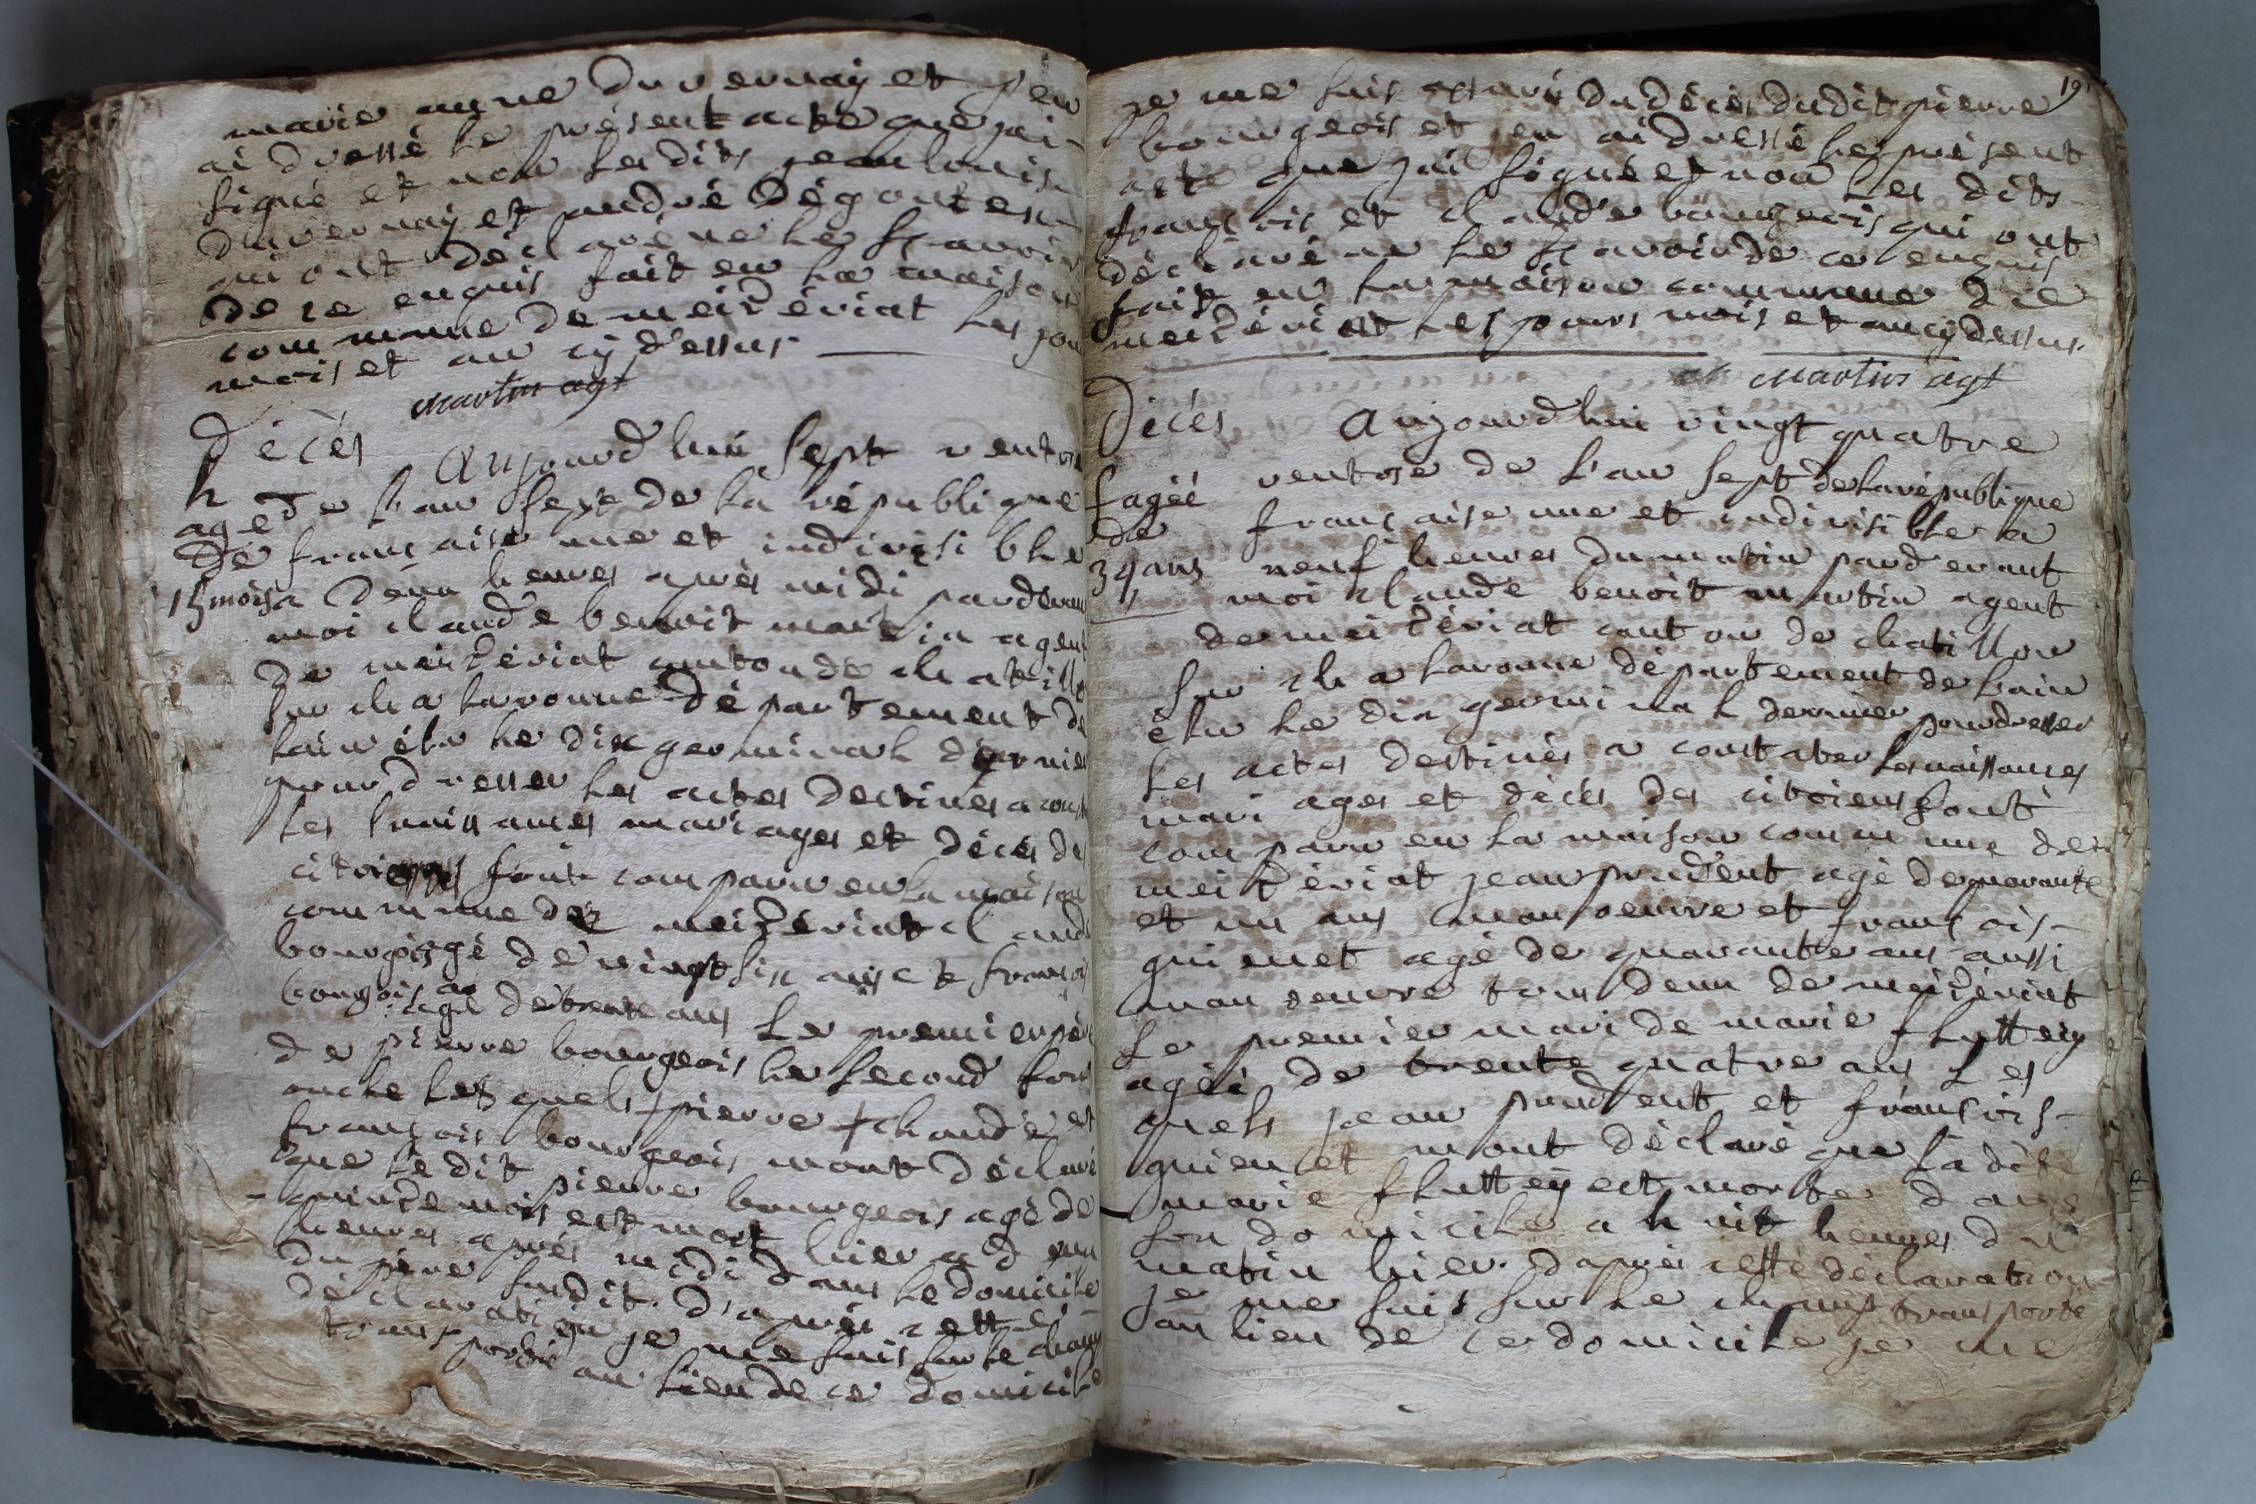 marie anne duvernay et jen
ai dressé le présent acte que jai
signé et non les dits jean louis
duvernay et andré dégoutes
qui ont déclaré ne le sçavoir
de ce enquis fait en la maison
commune de meizériat les jour
mois et an cy dessus
martin agt
Décès
aujourdhui sept ventose
h
agé de lan sept de la république
de française une et indivisible
15 mois a deux heures après midi pardevant
moi claude benoit martin agent
de meizériat canton de chatillon
sur cha laronne département de
lain élu le dix germinal dernier
pour dresser les actes destines a const
les naissances mariages et décès de
citoiens sont comparu en la maison
commune de meizériat claude
bourgois agé de vingt six ans et françois
bourgois agé de trente ans le premier père
de pierre bourgeois le second son
oncle lesquels pierre claude et
françois bourgeois mont déclaré
que le dit pierre bourgeois agé de
quinze mois est mort hier a deux
heures après midi dans le domicile
du père susdit. d'après cette
déclaration je me suis sur le champ
transporté au lieu de ce domicile
19
je me suis assuré du décès dudit pierre
bourgeois et jen ai dressé le présent
acte que jai signé et non les dits
françois et claude bourgeois qui ont
déclaré ne le sçavoir de ce enquis
fait en la maison commune de
meizériat les jours mois et an cy dessus.
martin agt
Décès
aujourdhui vingt quatre
f agéé ventose de l'an sept de la république
de française une et indivisible a
34 ans neuf heures du matin pardevant
moi claude benoit martin agent
de meizériat canton de chatillon
sur cha laronne département de lain
élu le dix germinal dernier pour dresser
les actes destinés a constater les naissances
mariages et décès des citoiens sont
comparu en la maison commune de
meizériat jean prudent agé de quarante
et un ans manoeuvre et françois
quienet agé de quarante ans aussi
manoeuvre tous deux de meizériat
le premier mari de marie fluttey
agéé de trente quatre ans les
quels jean prudent et françois
quienet mont déclaré que ladite
marie fluttey est morte dans
son domicile a huit heures du
matin hier. d'après cette déclaration
je me suis sur le champ transporté
au lieu de ce domicile je me